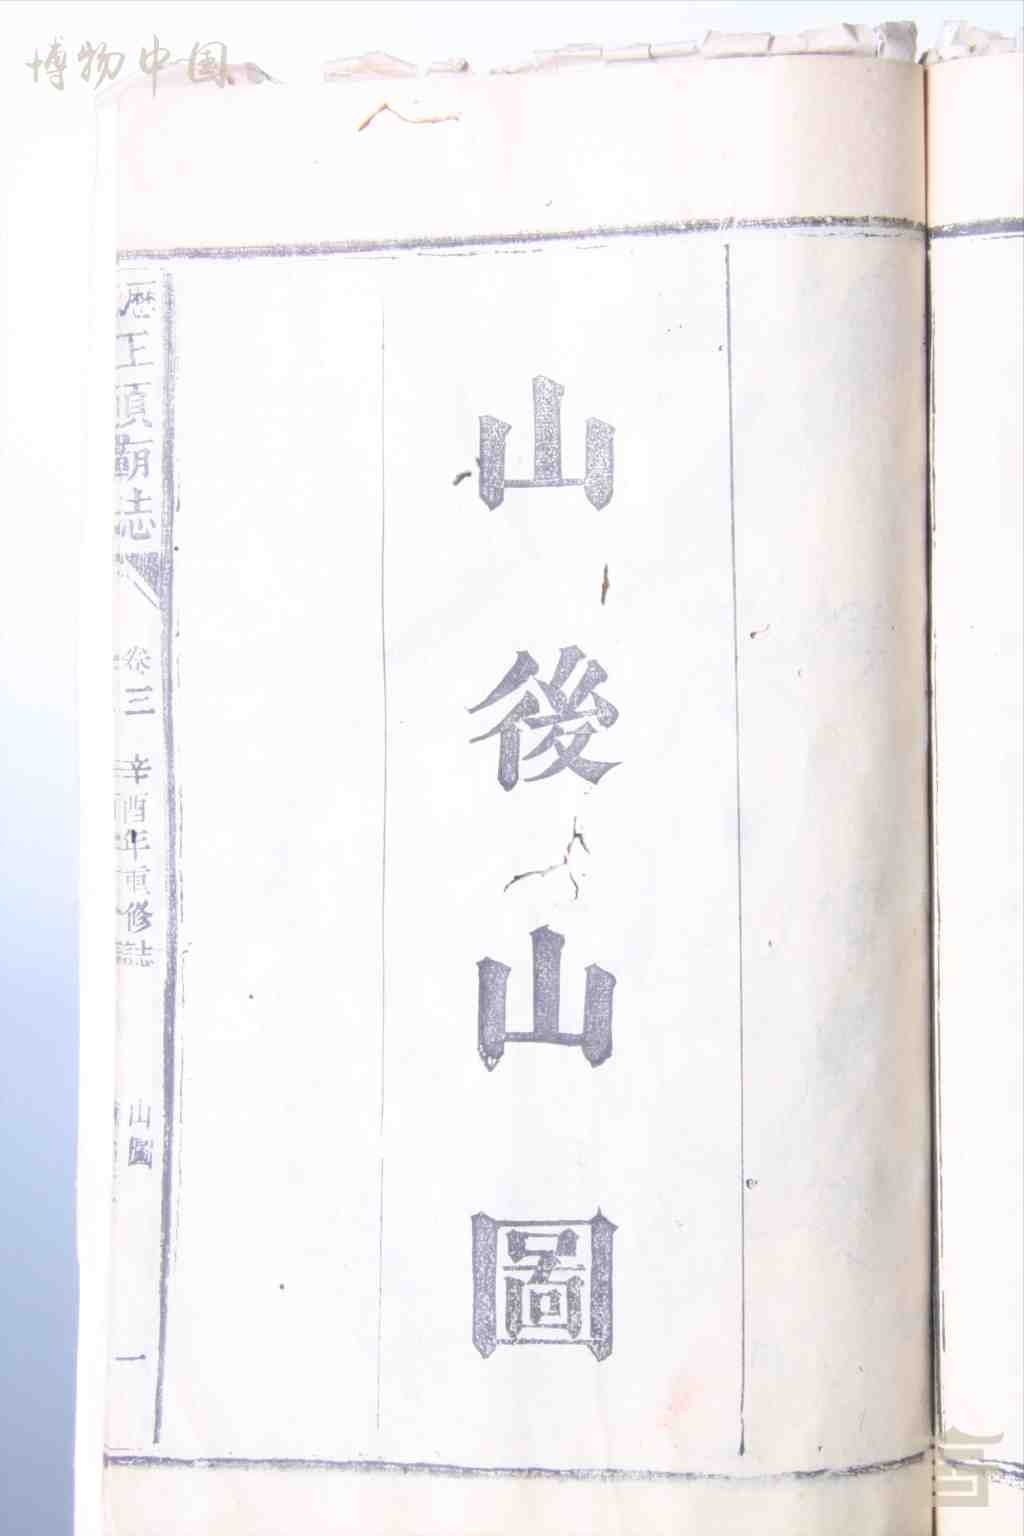 博物中国
山後山圖
歷王頭廟志
卷三
辛酉年重修誌
山圖
一